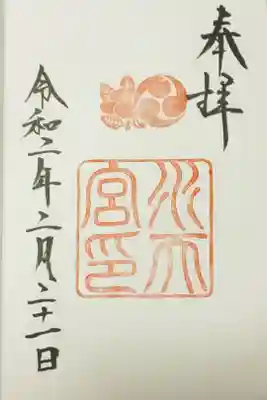 奉拝
水天
宮印
令和二年二月二十一日